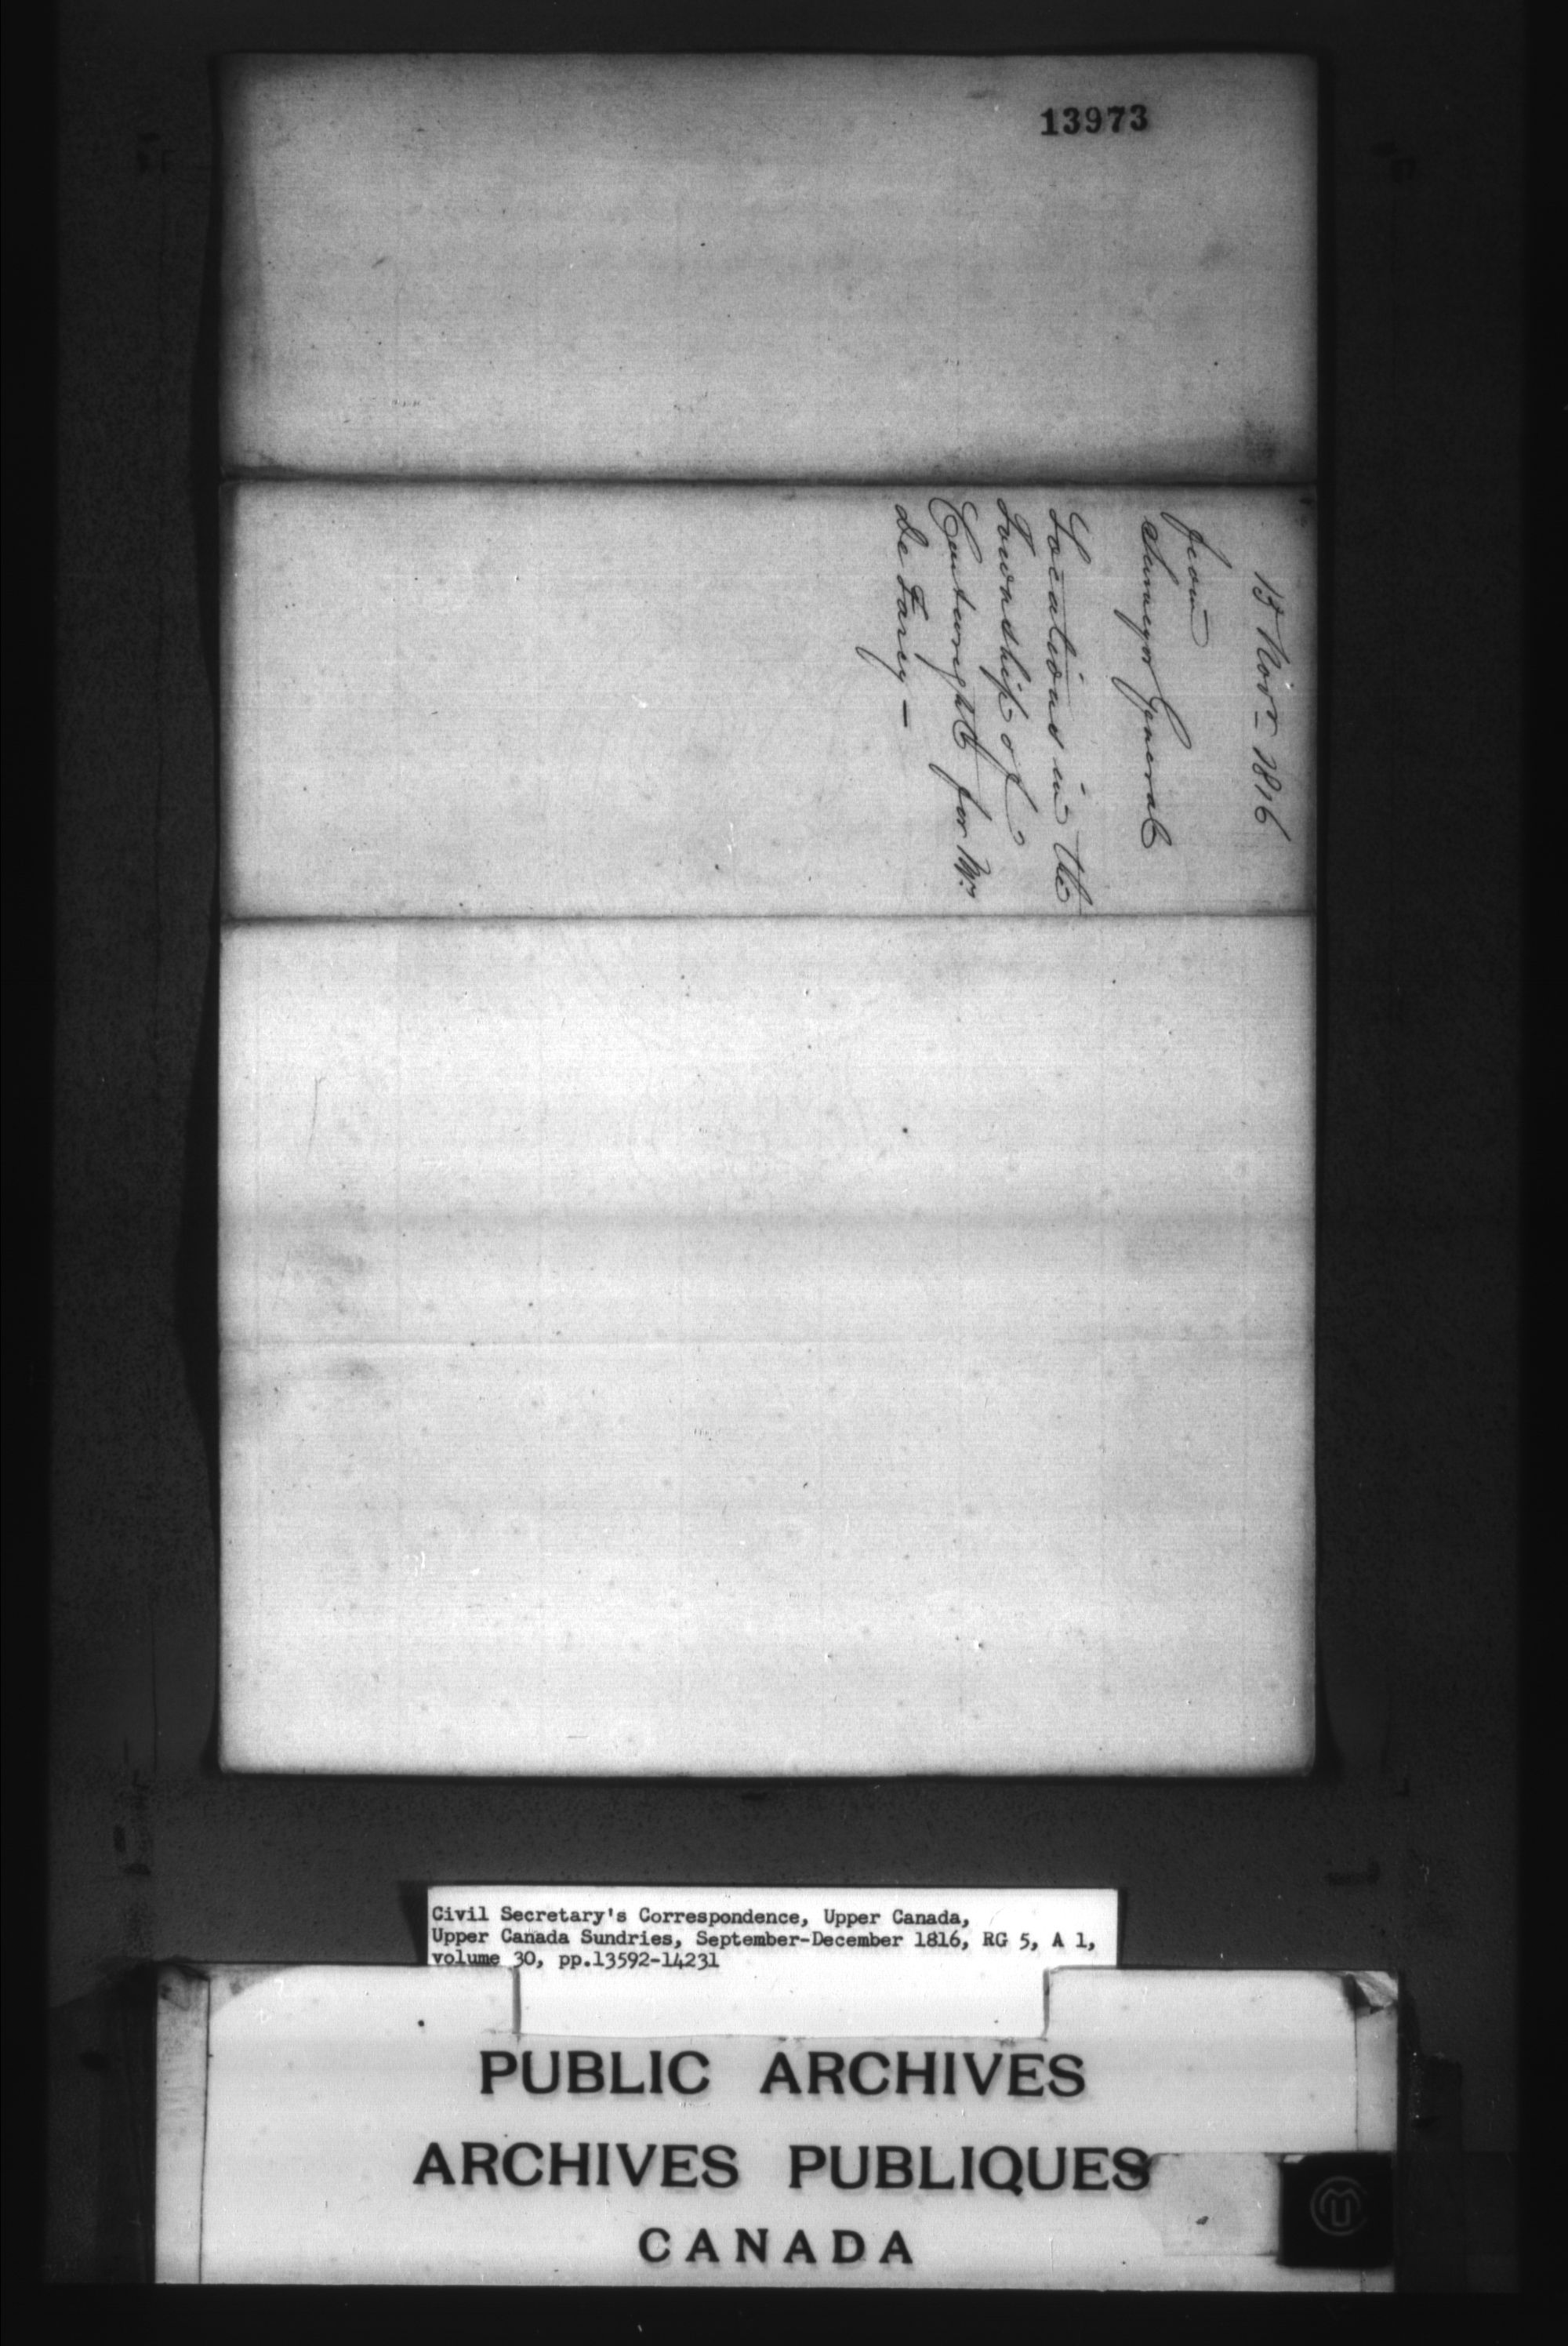 13973
15 Novr 1816
from
Surveyor General
Locations in the
Township of
Cartwright for Mr
De Farcy —
Civil Secretary's Correspondence, Upper Canada,
Upper Canada Sundries, September-December 1816, RG 5, A 1,
volume 30, pp.13592-14231
PUBLIC ARCHIVES
ARCHIVES PUBLIQUES
CANADA